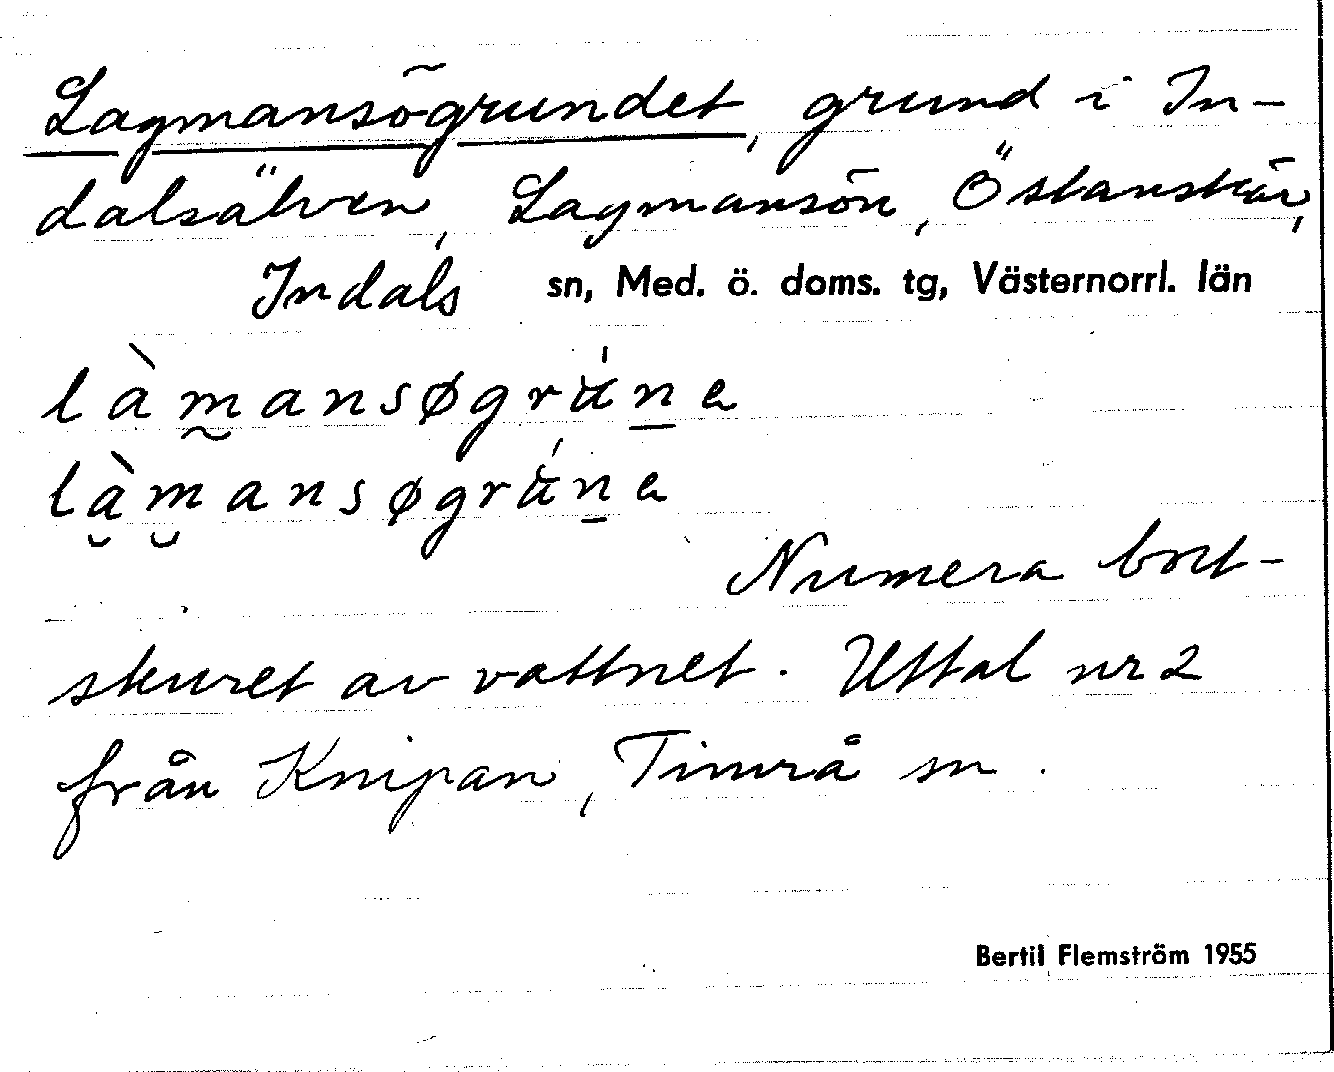 Lagmansögrundet, grund i In-
dalsälven, Lagmansön, Östanskär,
Indals sn, Med. ö. doms. tg, Västernorrl. län
là m̰ a n s ø g r u̍ n̲ e
là̮ m̮ a n s ø g r u̍ n̲ e
Numera bort-
skuret av vattnet. Uttal nr 2
från Knipan, Timrå sn.
Bertil Flemström 1955